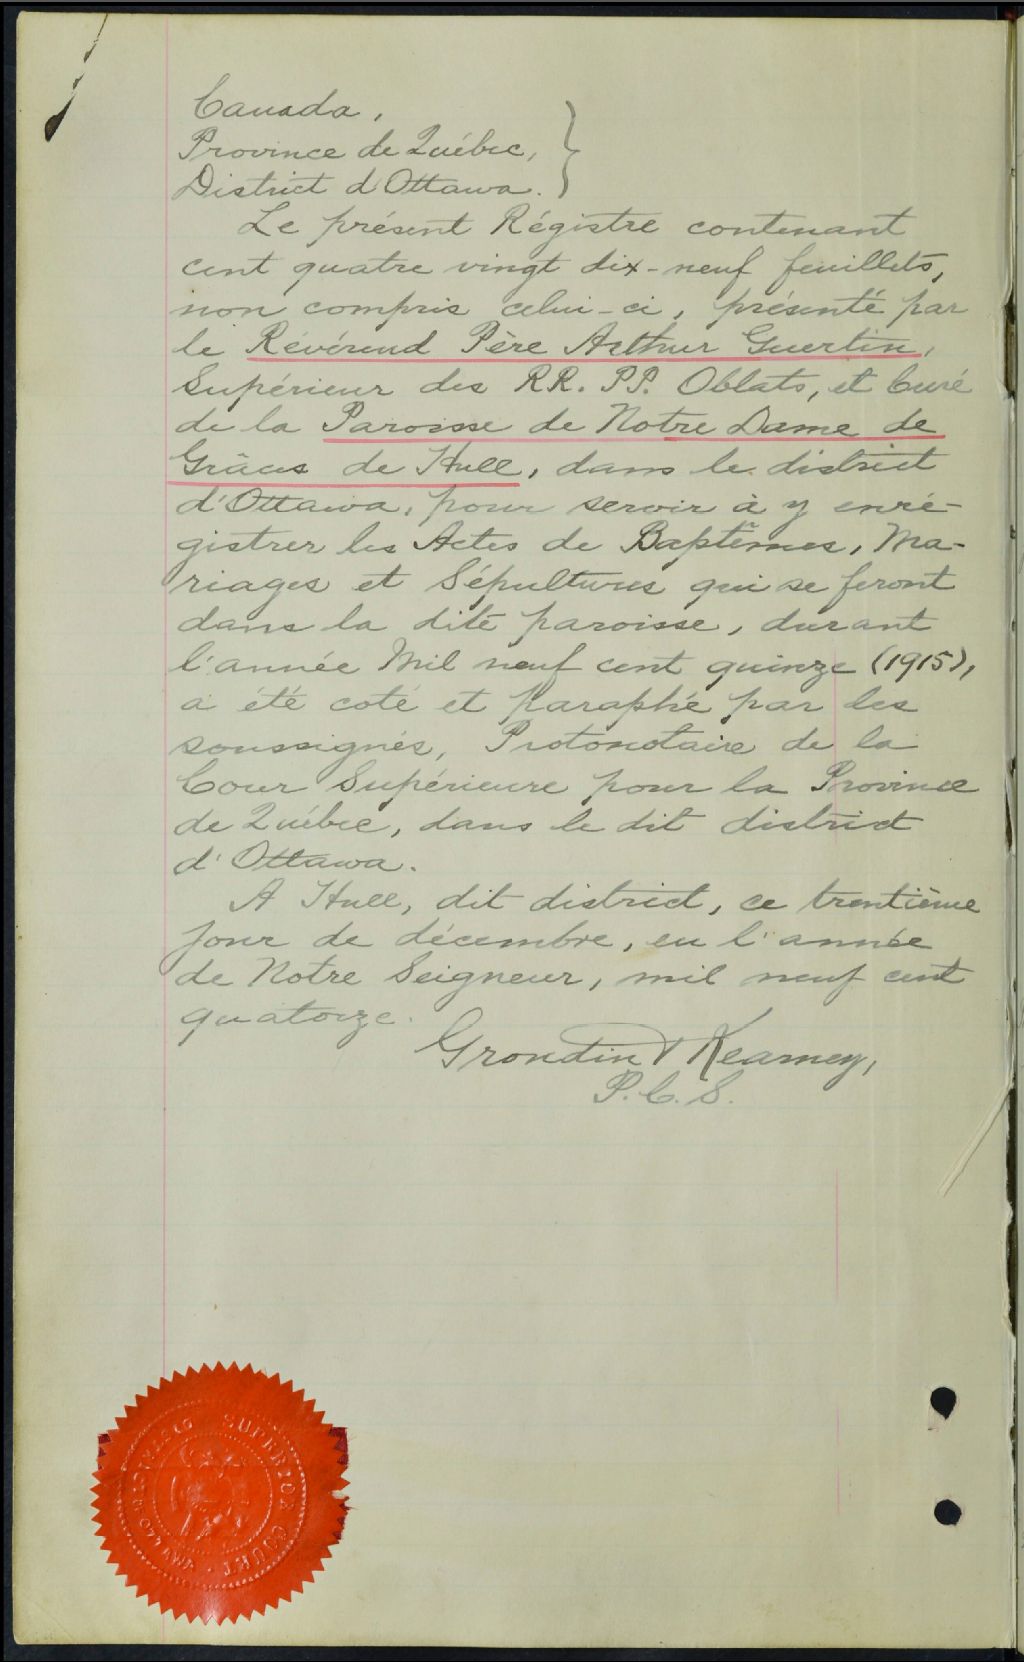 Canada,
Province de Québec,
District d'Ottawa.
Le présent Régistre contenant
cent quatre vingt dix-neuf feuillets,
non compris celui-ci, présenté par
le Révérend Père Arthur Guertin,
Supérieur des RR. PP. Oblats, et Curé
de la Paroisse de Notre Dame de
Grâces de Hull, dans le district
d'Ottawa, pour servir à y enré-
gistrer les Actes de Baptêmes, Ma-
riages et Sépultures qui se feront
dans la dite paroisse, durant
l'année Mil neuf cent quinze (1915),
a été coté et paraphé par les
soussignés, Protonotaire de la
Cour Supérieure pour la Province
de Québec, dans le dit district
d'Ottawa.
A Hull, dit district, ce trentième
jour de décembre, en l'année
de Notre Seigneur, mil neuf cent
quatorze.
Grondin & Kearney,
P.C.S.
SUPERIOR COURT
DISTRICT OTTAWA